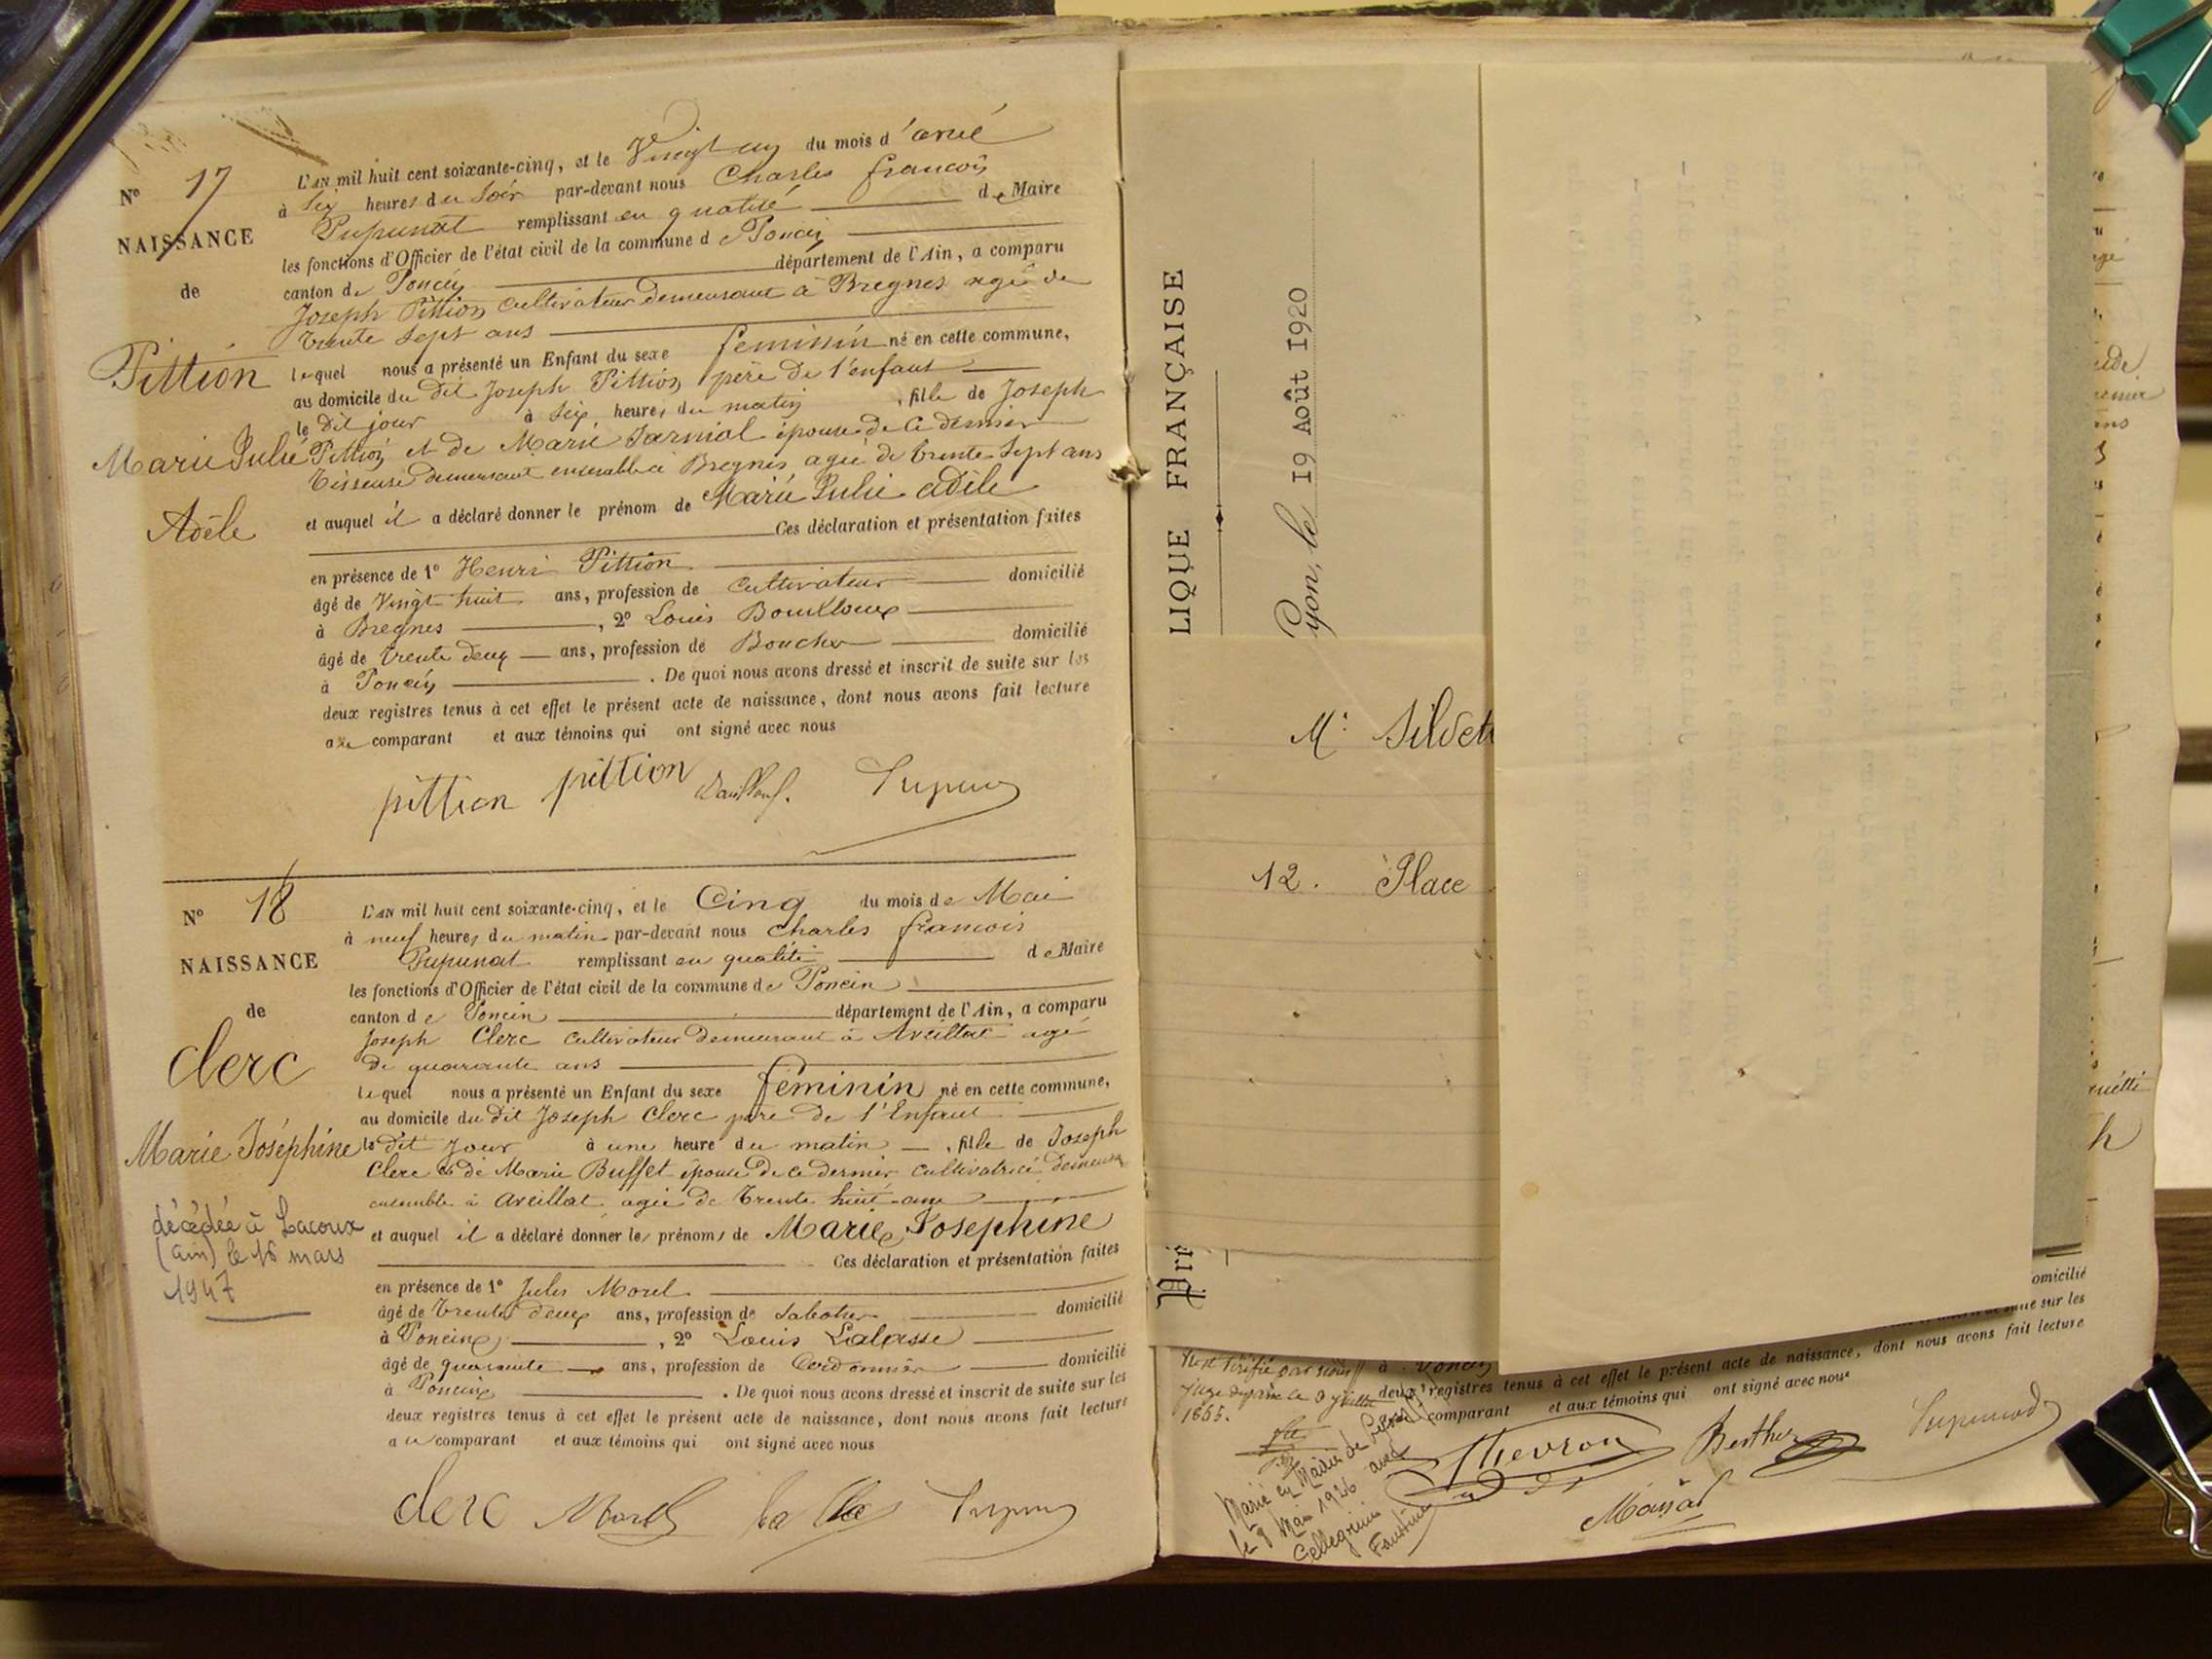 N° 17
NAISSANCE
de
Pittion
Marie Julie
Adèle
L'AN mil huit cent soixante-cinq, et le Vingt un du mois d'avril
à Six heures du Soir par-devant nous Charles francois
Pupunat remplissant en qualité de Maire
les fonctions d'Officier de l'état civil de la commune de Poncin
canton de Poncin département de l'Ain, a comparu
Joseph Pittion Cultivateur demeurant à Bregnes agé de
trente Sept ans
lequel nous a présenté un Enfant du sexe feminin né en cette commune,
au domicile du dit Joseph Pittion père de l'enfant
le dit jour à Six heures du matin, fille de Joseph
Pittion et de Marie Jarniol épouse de ce dernier
tisseuse demeurant ensemble à Bregnes agée de trente Sept ans
et auquel il a déclaré donner le prénom de Marie Julie adèle
Ces déclaration et présentation faites
en présence de 1° Henri Pittion
âgé de Vingt huit ans, profession de Cultivateur domicilié
à Bregnes, 2° Louis Bouilloux
âgé de trente deux ans, profession de Boucher domicilié
à Poncin. De quoi nous avons dressé et inscrit de suite sur les
deux registres tenus à cet effet le présent acte de naissance, dont nous avons fait lecture
au comparant et aux témoins qui ont signé avec nous
pittion pittion
N° 18
NAISSANCE
de
Clerc
Marie Joséphine
décédée à Lacoux
(Ain) le 16 mars
1947
L'AN mil huit cent soixante-cinq, et le Cinq du mois de Mai
à neuf heures du matin par-devant nous Charles francois
Pupunat remplissant en qualité de Maire
les fonctions d'Officier de l'état civil de la commune de Poncin
canton de Poncin département de l'Ain, a comparu
Joseph Clerc Cultivateur demeurant à Aveillat agé
de quarante ans
lequel nous a présenté un Enfant du sexe féminin né en cette commune,
au domicile du dit Joseph Clerc père de l'Enfant
le dit jour à une heure du matin, fille de Joseph
Clerc et de Marie Buffet épouse de ce dernier cultivatrice
ensemble à Aveillat agée de trente huit ans
et auquel il a déclaré donner les prénoms de Marie Josephine
Ces déclaration et présentation faites
en présence de 1° Jules Morel
âgé de trente deux ans, profession de Sabotier domicilié
à Poncin, 2° Louis Lalasse
âgé de quarante ans, profession de Cordonnier domicilié
à Poncin. De quoi nous avons dressé et inscrit de suite sur les
deux registres tenus à cet effet le présent acte de naissance, dont nous avons fait lecture
au comparant et aux témoins qui ont signé avec nous
Clerc Morel
LIQUE FRANÇAISE
Lyon, le 19 Août 1920
12. Place
omicilié
sur les
deux registres tenus à cet effet le présent acte de naissance, dont nous avons fait lecture
comparant et aux témoins qui ont signé avec nous
1865.
Thevron
le 8 Mai 1926 avec